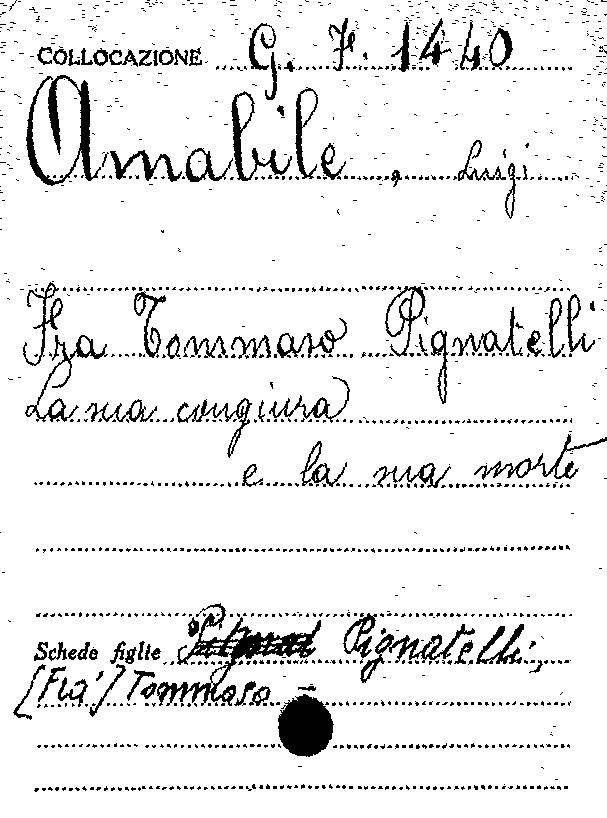 COLLOCAZIONE G. F. 1440
Amabile, Luigi
Fra Tommaso Pignatelli
La sua congiura
e la sua morte
Schede figlie Pignatelli,
[Fra'] Tommaso -